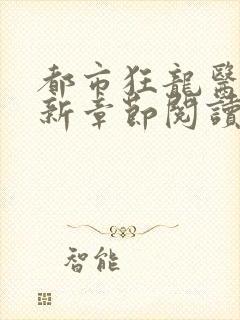 都市狂龍醫
新章節閱讀
智能